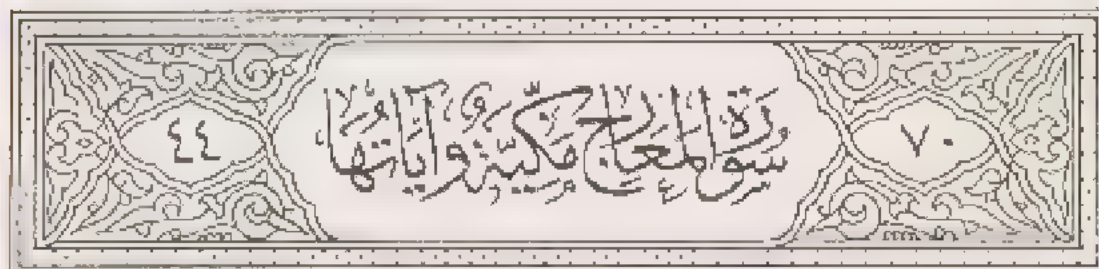 ٧٠ سورة المعارج مكية وآياتها ٤٤